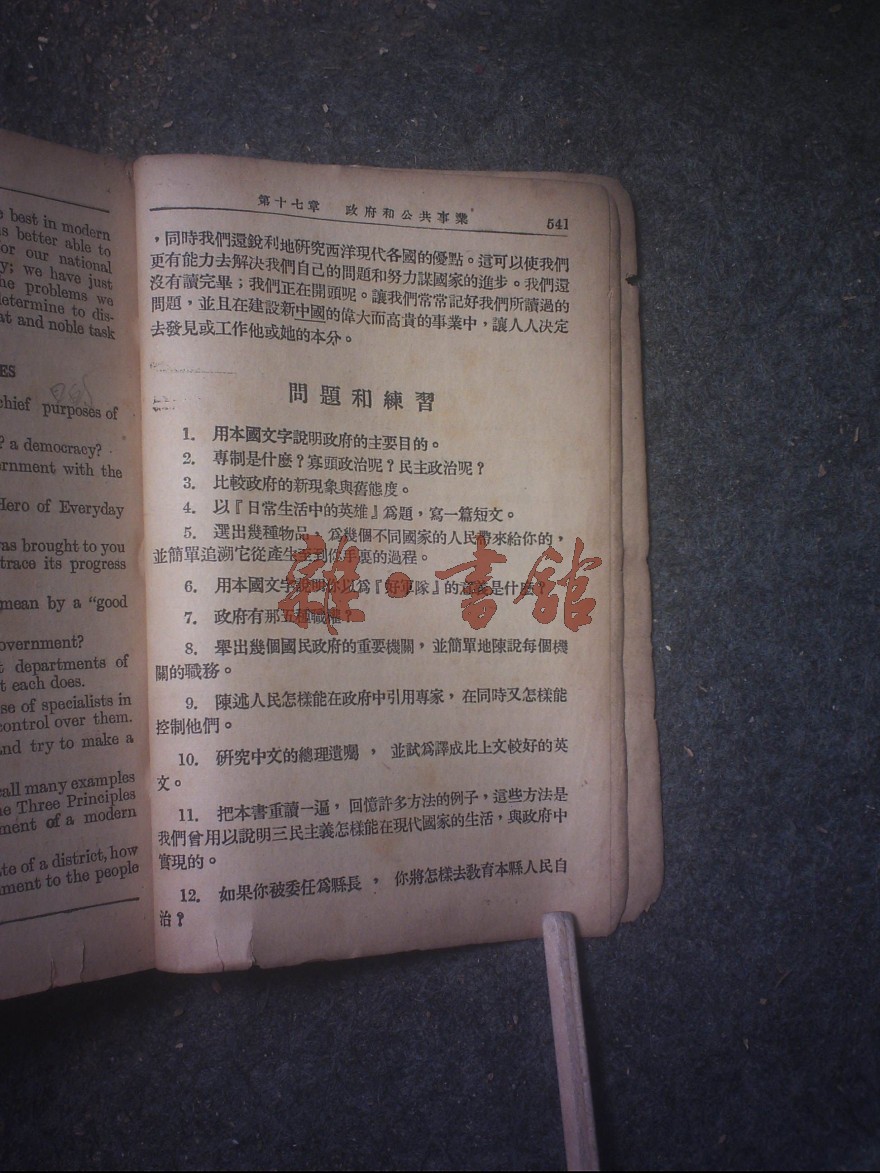 e best in modern
is better able to
for our national
y; we have just
he problems we
determine to dis-
at and noble task
ES
chief purposes of
? a democracy?
ernment with the
Hero of Everyday
was brought to you
trace its progress
mean by a “good
overnment?
t departments of
t each does.
se of specialists in
control over them.
and try to make a
call many examples
e Three Principles
ment of a modern
te of a district, how
nment to the people
第十七章 政府和公共事業 541
，同時我們還銳利地硏究西洋現代各國的優點。這可以使我們
更有能力去解決我們自己的問題和努力謀國家的進步。我們還
沒有讀完畢；我們正在開頭呢。讓我們常常記好我們所讀過的
問題，並且在建設新中國的偉大而高貴的事業中，讓人人決定
去發見或工作他或她的本分。
問題和練習
1. 用本國文字說明政府的主要目的。
2. 專制是什麼？寡頭政治呢？民主政治呢？
3. 比較政府的新現象與舊態度。
4. 以『日常生活中的英雄』爲題，寫一篇短文。
5. 選出幾種物品，爲幾個不同國家的人民帶來給你的，
並簡單追溯它從產生至到你手裏的過程。
6. 用本國文字說明你以爲『好軍隊』的意義是什麼？
7. 政府有那五種職權？
8. 舉出幾個國民政府的重要機關，並簡單地陳說每個機
關的職務。
9. 陳述人民怎樣能在政府中引用專家，在同時又怎樣能
控制他們。
10. 硏究中文的總理遺囑，並試爲譯成比上文較好的英
文。
11. 把本書重讀一遍，回憶許多方法的例子，這些方法是
我們曾用以說明三民主義怎樣能在現代國家的生活，與政府中
實現的。
12. 如果你被委任爲縣長，你將怎樣去敎育本縣人民自
治？
雜·書舘